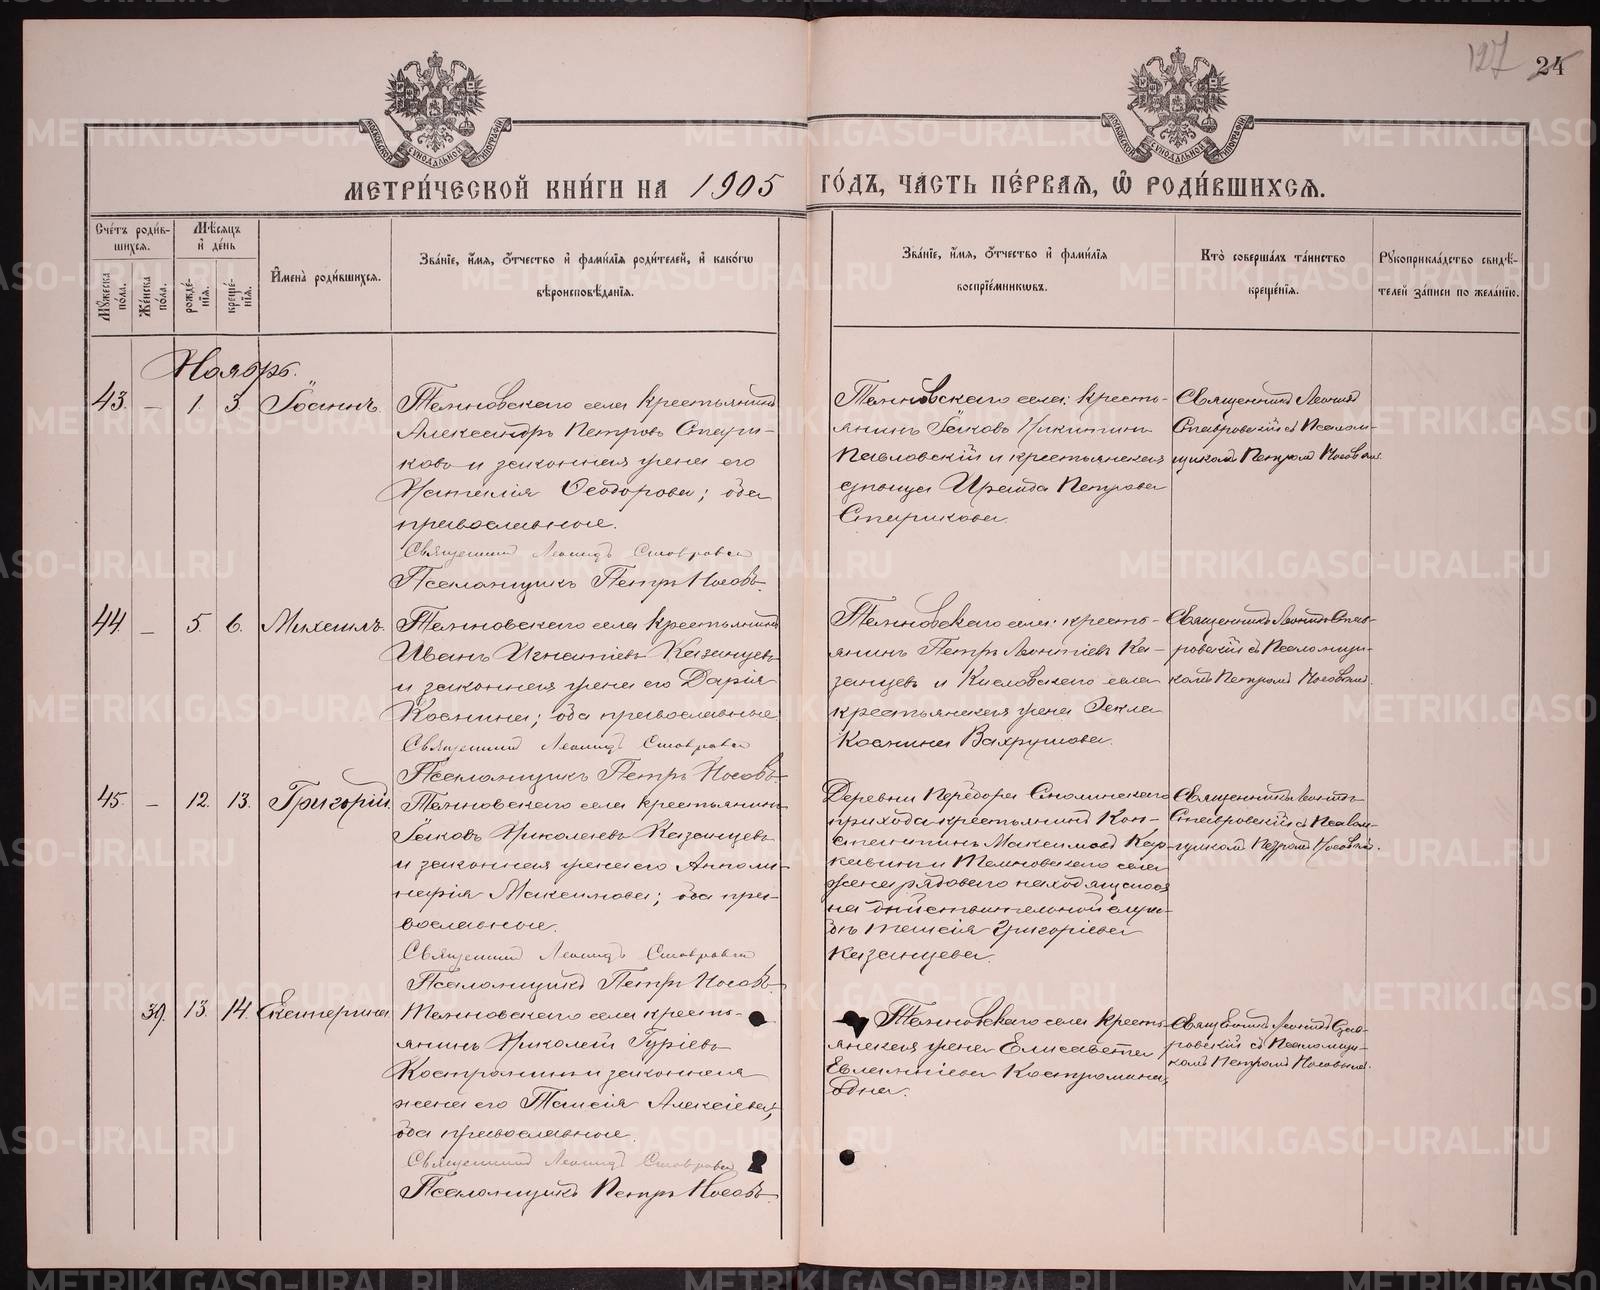 127 24
МЕТРИЧЕСКОЙ КНИГИ НА 1905 ГОДЪ, ЧАСТЬ ПЕРВАЯ, Ѡ РОДИВШИХСЯ.
Счетъ родив-
шихся.
Мѣсяцъ
и день
Мужеска пола.
Женска пола.
рожде-
нія.
креще-
нія.
Имена родившихся.
Званіе, имя, отчество и фамилія родителей, и какогѡ
вѣроисповѣданія.
Званіе, имя, отчество и фамилія
воспріемникѡвъ.
Кто совершалъ таинство
крещенія.
Рукоприкладство свидѣ-
телей записи по желанію.
Ноябрь.
43. — 1. 3. Іоаннъ.
села крестьянинъ
Александръ Петровъ Стари-
ковъ и законная жена его
Наталія Ѳеодорова; оба
православные.
Священникъ Леонидъ Ставровскій
Псаломщикъ Петръ Носовъ.
села: кресть-
янинъ Іаковъ Никитинъ
Павловскій и крестьянская
дѣвица Ираида Петрова
Старикова.
Священникъ Леонидъ
Ставровскій съ Псалом-
щикомъ Петромъ Носовымъ.
44. — 5. 6. Михаилъ.
села крестьянинъ
Иванъ Игнатіевъ Казанцевъ
и законная жена его Дарія
Космина; оба православные
Священникъ Леонидъ Ставровскій
Псаломщикъ Петръ Носовъ.
села: кресть-
янинъ Петръ Леонтіевъ Ка-
занцевъ и Кисловскаго села
крестьянская жена Ѳекла
Космина Вахрушева.
Священникъ Леонидъ Став-
ровскій съ Псаломщи-
комъ Петромъ Носовымъ.
45. — 12. 13. Григорій.
села крестьянинъ
Іаковъ Николаевъ Казанцевъ
и законная жена его Аполи-
нарія Максимова; оба пра-
вославные.
Священникъ Леонидъ Ставровскій
Псаломщикъ Петръ Носовъ.
Деревни
прихода крестьянинъ Кон-
стантинъ Максимовъ Кар-
села
жена рядового находящагося
на дѣйствительной служ-
бѣ Таисія Григоріева
Казанцева.
Священникъ Леонидъ
Ставровскій съ Псалом-
щикомъ Петромъ Носовымъ.
39. 13. 14. Екатерина.
села кресть-
янинъ Николай Гуріевъ
Костромин и законная
жена его Таисія Алексіева;
оба православные.
Священникъ Леонидъ Ставровскій
Псаломщикъ Петръ Носовъ.
села кресть-
янская жена Елисавета
Евлампіева Костромина,
одна.
Священникъ Леонидъ Став-
ровскій съ Псаломщи-
комъ Петромъ Носовымъ.
METRIKI.GASO-URAL.RU